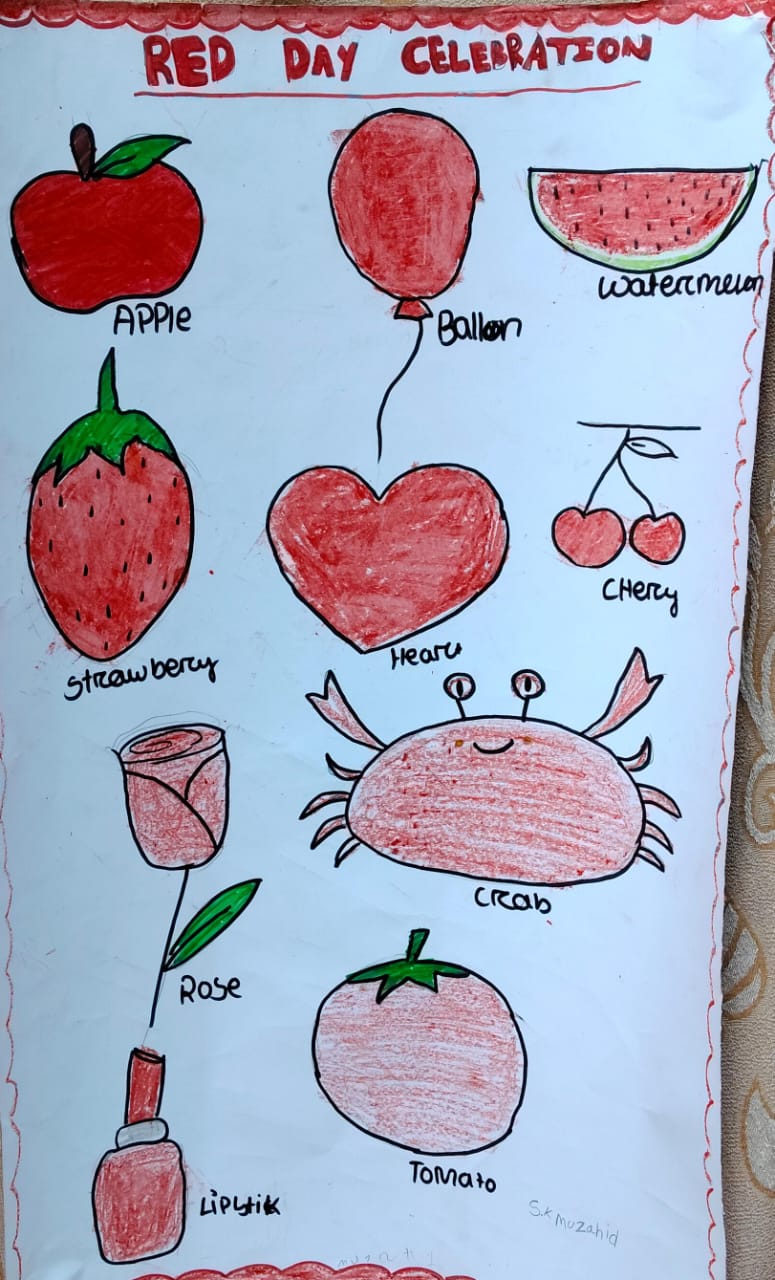 RED DAY CELEBRATION
APPle
Balloon
Watermelon
CHerry
Heart
Strawberry
Crab
Rose
Tomato
Lipstik
S.K Muzahid